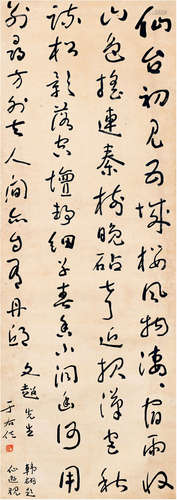 仙台初见五城楼风物凄凄宿雨收
山色摇连秦树晚砧声近报汉宫秋
疏松影落空坛静细草春香小洞幽何用
别寻方外去人间亦自有丹丘
文超先生
于右任
韩翃题
仙游观